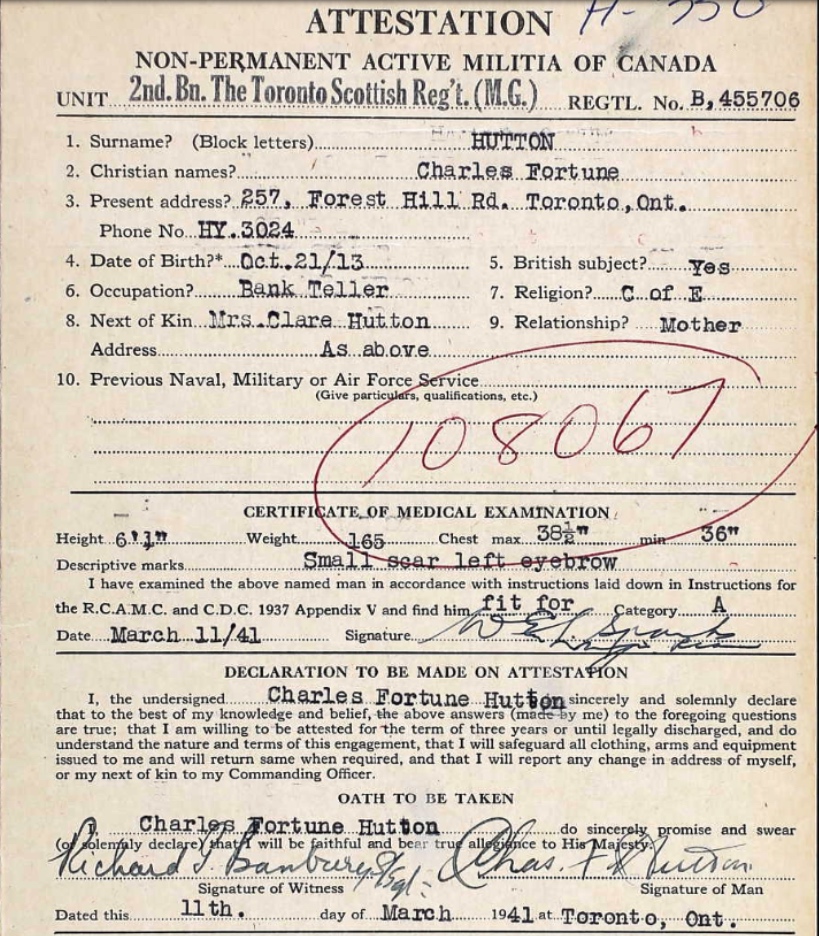 ATTESTATION
NON-PERMANENT ACTIVE MILITIA OF CANADA
UNIT 2nd. Bn. The Toronto Scottish Reg't. (M.G.) REGTL. No. B, 455706
1. Surname? (Block letters) HUTTON
2. Christian names? Charles Fortune
3. Present address? 257, Forest Hill Rd. Toronto, Ont.
Phone No HY.3024
4. Date of Birth?* Oct.21/13 5. British subject? Yes
6. Occupation? Bank Teller 7. Religion? C of E
8. Next of Kin Mrs.Clare Hutton 9. Relationship? Mother
Address As above
10. Previous Naval, Military or Air Force Service
(Give particulars, qualifications, etc.)
108067
CERTIFICATE OF MEDICAL EXAMINATION
Height 6'1" Weight 165 Chest max 38½" min 36"
Descriptive marks Small scar left eyebrow
I have examined the above named man in accordance with instructions laid down in Instructions for
the R.C.A.M.C. and C.D.C. 1937 Appendix V and find him fit for Category A
Date March 11/41 Signature
DECLARATION TO BE MADE ON ATTESTATION
I, the undersigned Charles Fortune Hutton sincerely and solemnly declare
that to the best of my knowledge and belief, the above answers (made by me) to the foregoing questions
are true; that I am willing to be attested for the term of three years or until legally discharged, and do
understand the nature and terms of this engagement, that I will safeguard all clothing, arms and equipment
issued to me and will return same when required, and that I will report any change in address of myself,
or my next of kin to my Commanding Officer.
OATH TO BE TAKEN
I, Charles Fortune Hutton do sincerely promise and swear
(or solemnly declare) that I will be faithful and bear true allegiance to His Majesty.
Richard Banbury Chas. F Hutton
Signature of Witness Signature of Man
Dated this 11th. day of March 1941 at Toronto, Ont.